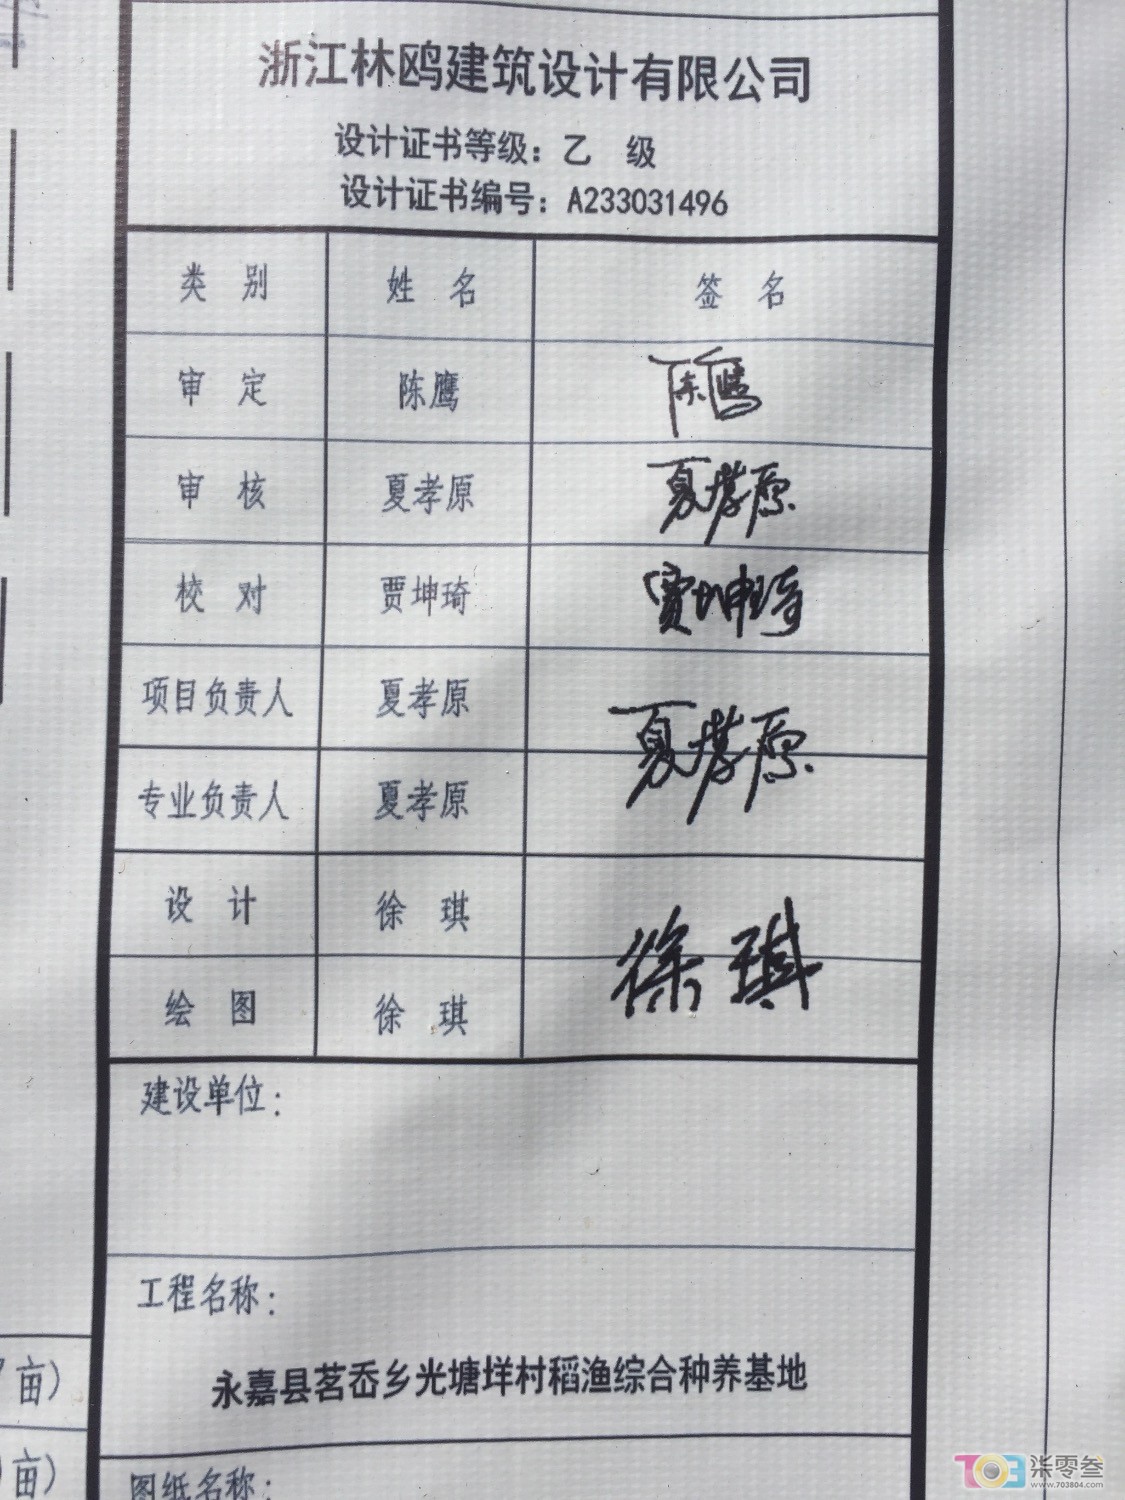 浙江林鸥建筑设计有限公司
设计证书等级：乙 级
设计证书编号：A233031496
类 别 姓 名 签 名
审 定 陈鹰 陈鹰
审 核 夏孝原 夏孝原
校 对 贾坤琦 贾坤琦
项目负责人 夏孝原 夏孝原
专业负责人 夏孝原
设 计 徐 琪 徐琪
绘 图 徐 琪
建设单位：
工程名称：
永嘉县茗岙乡光塘垟村稻渔综合种养基地
亩）
亩）
图纸名称：
703 柒零叁
www.703804.com